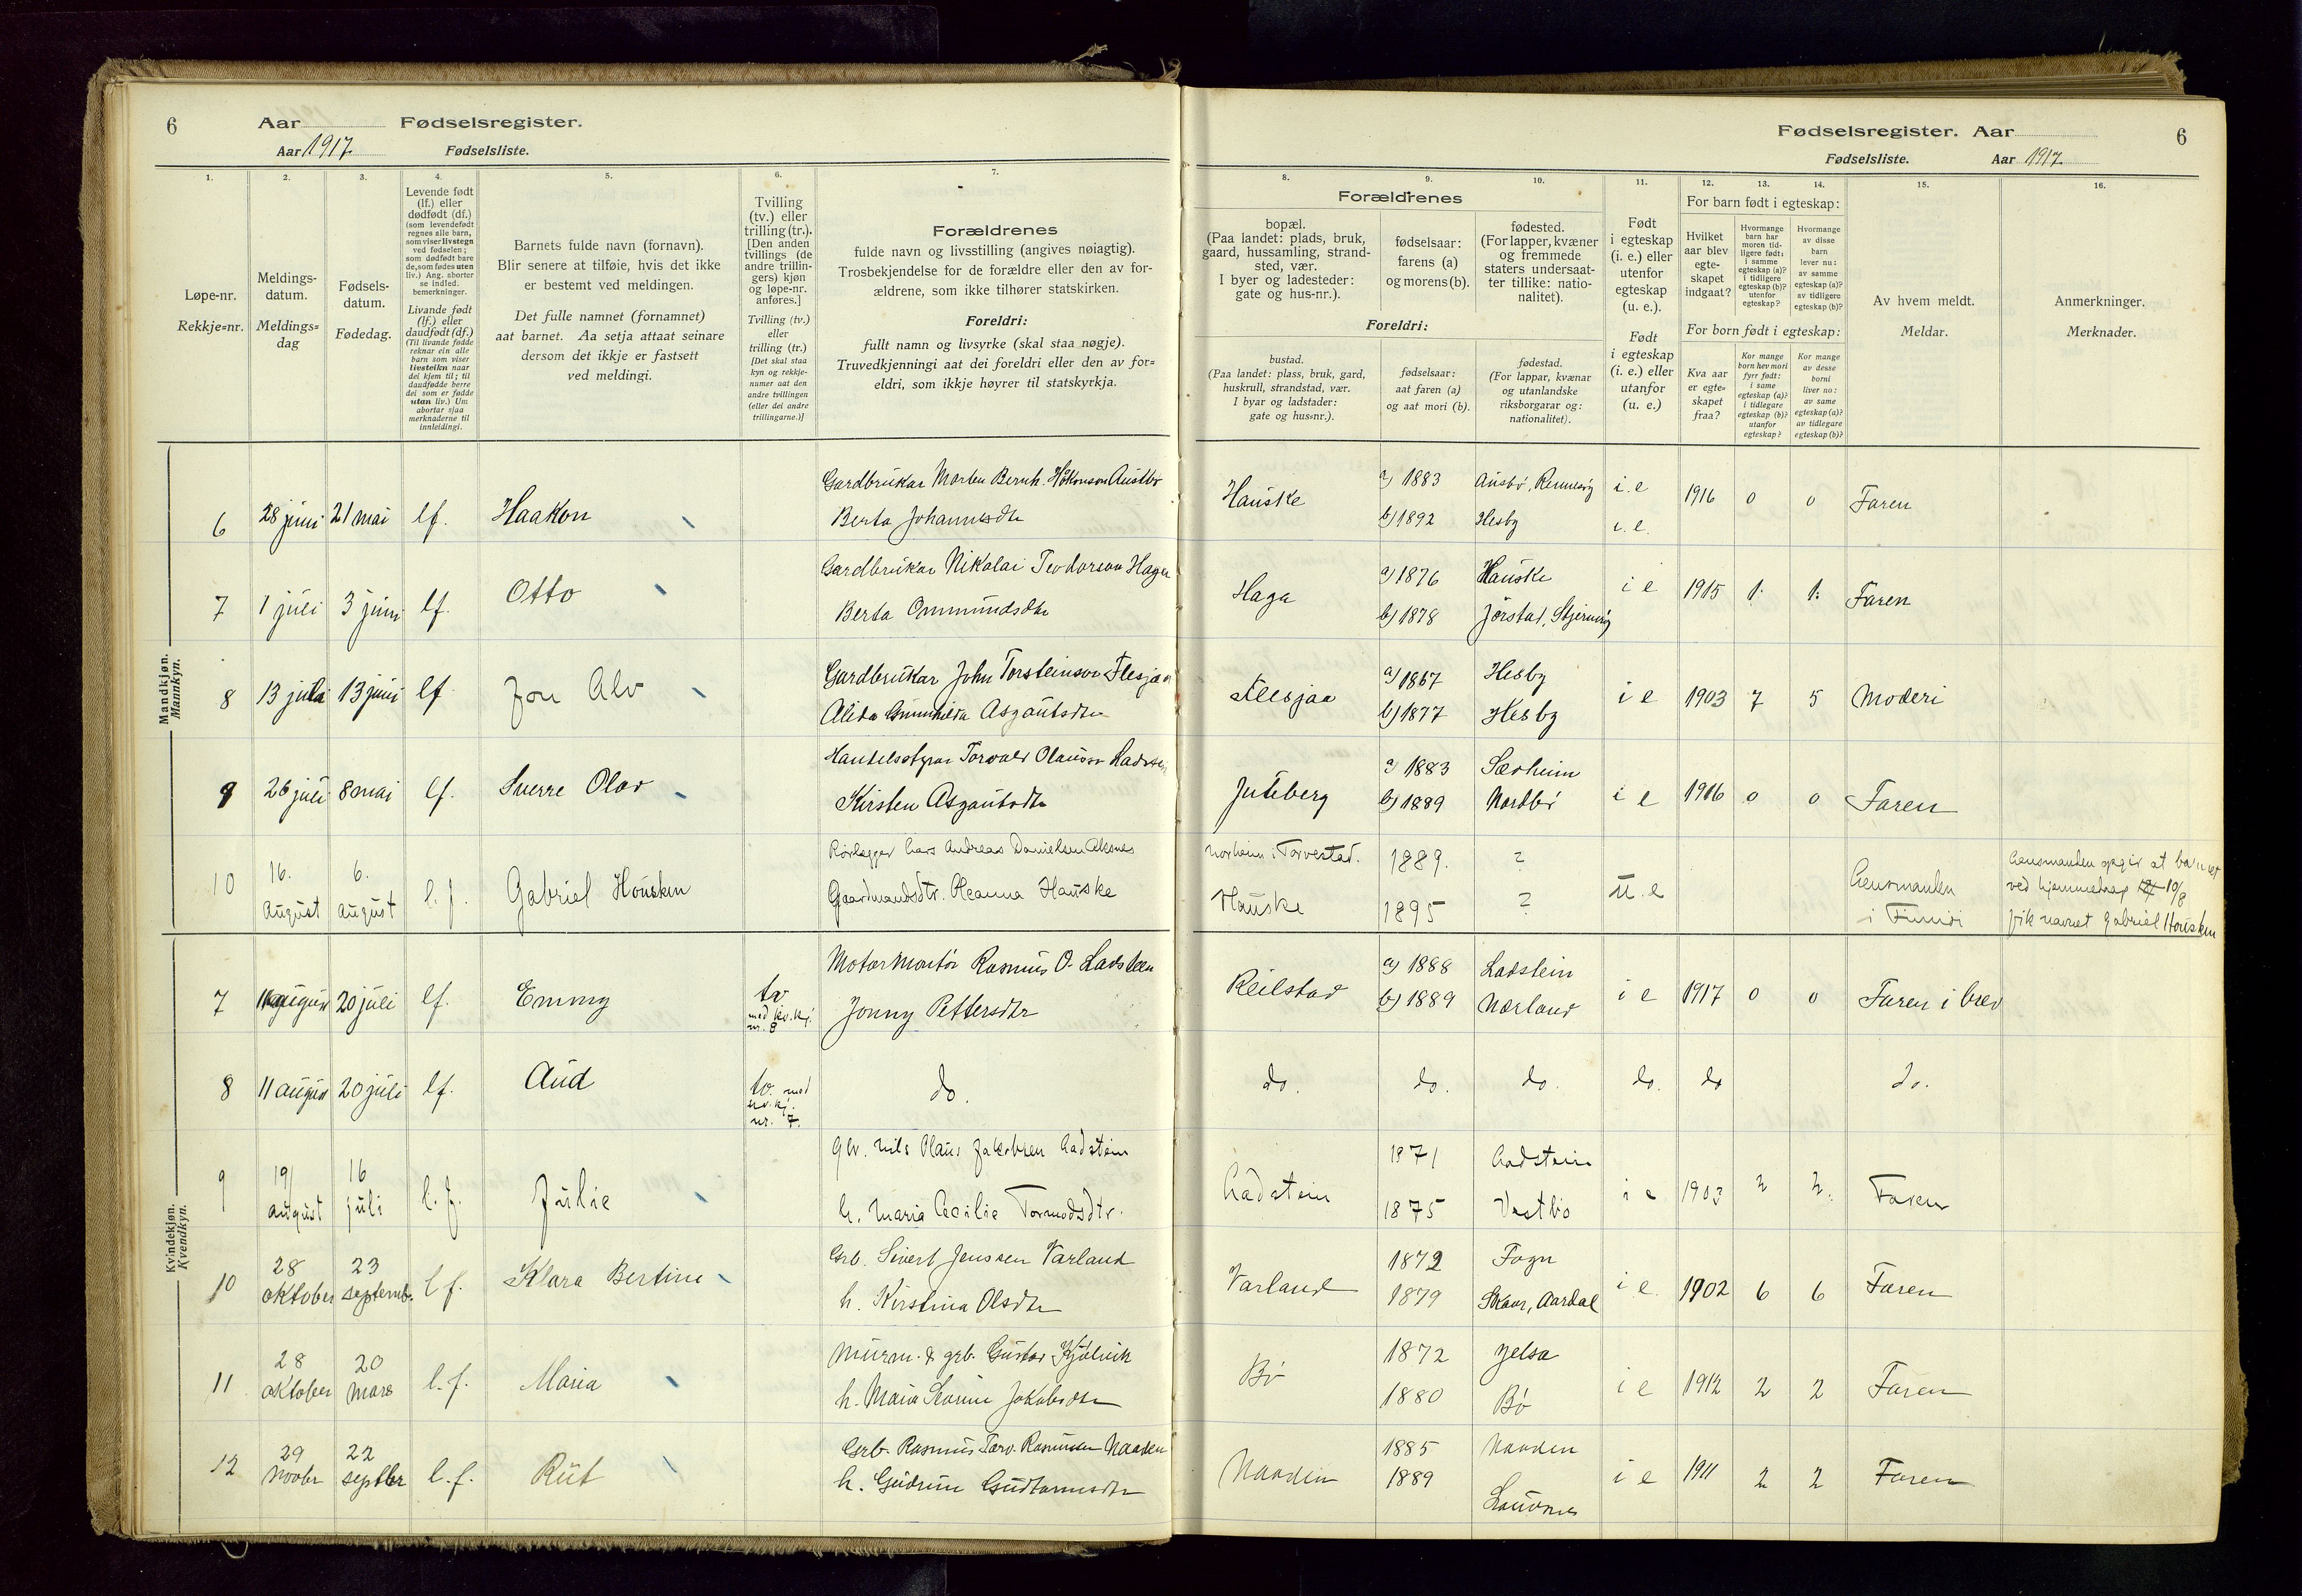 6
Aar
Fødselsregister.
Aar 1917.
Fødselsliste.
1.
2.
3.
4.
5.
6.
7.
Løpe-nr.
Rekkje=nr.
Meldings-
datum.
Meldings=
dag
Fødsels-
datum.
Fødedag.
Levende født
(lf.) eller
dødfødt (df.)
(som levendefødt
regnes alle barn,
som viser livstegn
ved fødselen;
som dødfødt bare
de, som fødes uten
liv.) Ang. aborter
se indled.
bemerkninger.
Livande født
(lf.) eller
daudfødt (df.)
(Til livande fødde
reknar ein alle
barn som viser
livsteikn naar
dei kjem til; til
daudfødde berre
dei som er fødde
utan liv.) Um
abortar sjaa
merknaderne til
innleidingi.
Barnets fulde navn (fornavn).
Blir senere at tilføie, hvis det ikke
er bestemt ved meldingen.
Det fulle namnet (fornamnet)
aat barnet. Aa setja attaat seinare
dersom det ikkje er fastsett
ved meldingi.
Tvilling
(tv.) eller
trilling (tr.).
[Den anden
tvillings (de
andre trillin-
gers) kjøn
og løpe-nr.
anføres.]
Tvilling (tv.)
eller
trilling (tr.)
[Det skal staa
kyn og rekkje-
numer aat den
andre tvillingen
(eller dei andre
trillingarne.)]
Forældrenes
fulde navn og livsstilling (angives nøiagtig).
Trosbekjendelse for de forældre eller den av for-
ældrene, som ikke tilhører statskirken.
Foreldri:
fullt namn og livsyrke (skal staa nøgje).
Truvedkjenningi aat dei foreldri eller den av for=
eldri, som ikkje høyrer til statskyrkja.
Mandkjøn.
Mannkyn.
6 28 juni 21 mai lf. Haakon
Gardbrukar Morten Bernh. Håkonson Austbø
Berta Johannesdtr
7 1 juli 3 juni lf. Otto
Gardbrukar Nikolai Teodorson Haga
Berta Ommundsdtr
8 13 juli 13 juni lf Jon Alv
Gardbrukar John Torsteinson Flesjaa
Alida Gunnhilda Asgautsdtr
9 26 juli 8 mai lf. Sverre Olav
Handelsstyrar Torvald Olauson Ladstein
Kirsten Asgautsdtr
10 16. august 6. august l.f. Gabriel Housken
Rørlegger Lars Andreas Danielsen Aksnes
Gaardmandsdtr. Oleanna Hauske
Kvindekjøn.
Kvendkyn.
7 11 august 20 juli lf. Emmy tv med kv.kj. nr. 8
Motormontør Rasmus O. Ladstein
Jonny Pettersdtr
8 11 august 20 juli lf. Aud tv. med kv.kj. nr. 7. do.
9 19/ august 16 juli l.f. Julie
gbr. Nils Olaus Jakobsen Ladstein
h. Maria Cecilie Tormodsdtr.
10 28 oktober 23 septemb. l f. Klara Bertine
Grb. Sivert Jenssen Varland
h. Kirstina Olsdtr
11 28 oktober 20 Mars l.f. Maria
Murm. & grb. Gustav Kjølvik
h. Maria Jakobsdtr
12 29 novbr 22 septbr l.f. Rut
Grb. Rasmus Torv. Rasmussen Naaden
h. Gudrun Guttormsdtr
Fødselsregister. Aar
6
Fødselsliste.
Aar 1917.
8.
9.
10.
11.
12.
13.
14.
15.
16.
Forældrenes
bopæl.
(Paa landet: plads, bruk,
gaard, hussamling, strand-
sted, vær.
I byer og ladesteder:
gate og hus-nr.).
fødselsaar:
farens (a)
og morens (b).
fødested.
(For lapper, kvæner
og fremmede
staters undersaat-
ter tillike: natio-
nalitet).
Foreldri:
bustad.
(Paa landet: plass, bruk, gard,
huskrull, strandstad, vær.
I byar og ladstader:
gate og hus=nr.).
fødselsaar:
aat faren (a)
og aat mori (b).
fødestad.
(For lappar, kvænar
og utanlandske
riksborgarar og:
nationalitet).
Født
i egteskap
(i. e.) eller
utenfor
egteskap
(u. e.).
Født
i egteskap
(i. e.) eller
utanfor
(u. e.)
For barn født i egteskap:
Hvilket
aar blev
egte-
skapet
indgaat?
Hvormange
barn har
moren tid-
ligere født:
i samme
egteskap (a)?
i tidligere
egteskap (b)?
utenfor
egteskap?
Hvormange
av disse
barn
lever nu:
av samme
egteskap (a)?
av tidligere
egteskap (b)?
For born født i egteskap:
Kva aar
er egte=
skapet
fraa?
Kor mange
born hev mori
fyrr født:
i same
egteskap (a)?
i tidlegare
egteskap (b)?
utanfor
egteskap?
Kor mange
av desse
borni
liver no:
av same
egteskap (a)?
av tidlegare
egteskap (b)?
Av hvem meldt.
Meldar.
Anmerkninger.
Merknader.
Hauske a) 1883 Ausbø, Rennesøy i.e 1916 0 0 Faren
b) 1892 Hesby i.e.
Haga a) 1876 Hauske i e 1915 1. 1. Faren
b) 1878 Jørstad, Stjernerøy
Flesjaa a) 1867 Hesby i e 1903 7 5 Moderi
b) 1877 Hesby
Juteberg a) 1883 Sørheim i e 1916 0 0 Faren
b) 1889 Nordbø
Norheim i Torvestad. 1889. ? u.e Lensmanden
Hauske 1895 ? i Finnøi
Lensmanden opgir at barnet
ved hjemmedaap 10/8
fik navnet Gabriel Housken
Reilstad a) 1888 Ladstein i e 1917 0 0 Faren i brev
b) 1889 Nærland
do. do. do. do. do do.
Ladstein 1871 Ladstein i e 1903 2 2. Faren
1875 Vestbø
Varland 1872 Fogn i e 1902 6 6 Faren
1879 Skaar, Aardal
Bø 1872 Jelsa i e 1912 2 2 Faren
1880 Bø
Naaden 1885 Naaden i e 1911 2 2 Faren
1889 Lauvsnes